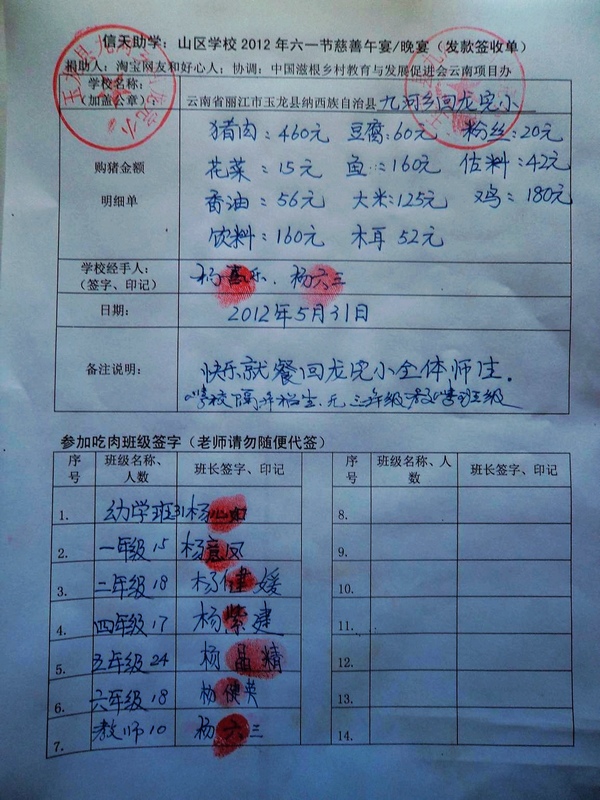 信天助学：山区学校2012年六一节慈善午宴/晚宴（发款签收单）
捐助人：淘宝网友和好心人；协调：中国滋根乡村教育与发展促进会云南项目办
学校名称：
（加盖公章） 云南省丽江市玉龙县纳西族自治县 九河乡回龙完小
猪肉：460元 豆腐：60元 粉丝：20元
购猪金额 花菜：15元 鱼：160元 佐料：42元
明细单 香油：56元 大米：125元 鸡：180元
饮料：160元 木耳 52元
学校经手人：
（签字、印记） 杨喜乐．杨六三
日期： 2012年5月31日
备注说明： 快乐就餐回龙完小全体师生．
学校隔年招生．无三年级
参加吃肉班级签字（老师请勿随便代签）
序号 班级名称、人数 班长签字、印记 序号 班级名称、人数 班长签字、印记
1. 幼学班31 杨 8.
2. 一年级15 杨意凤 9.
3. 二年级18 杨健媛 10.
4. 四年级17 杨紫建 11.
5. 五年级24 杨晶精 12.
6. 六年级18 杨健英 13.
7. 教师10 杨六三 14.